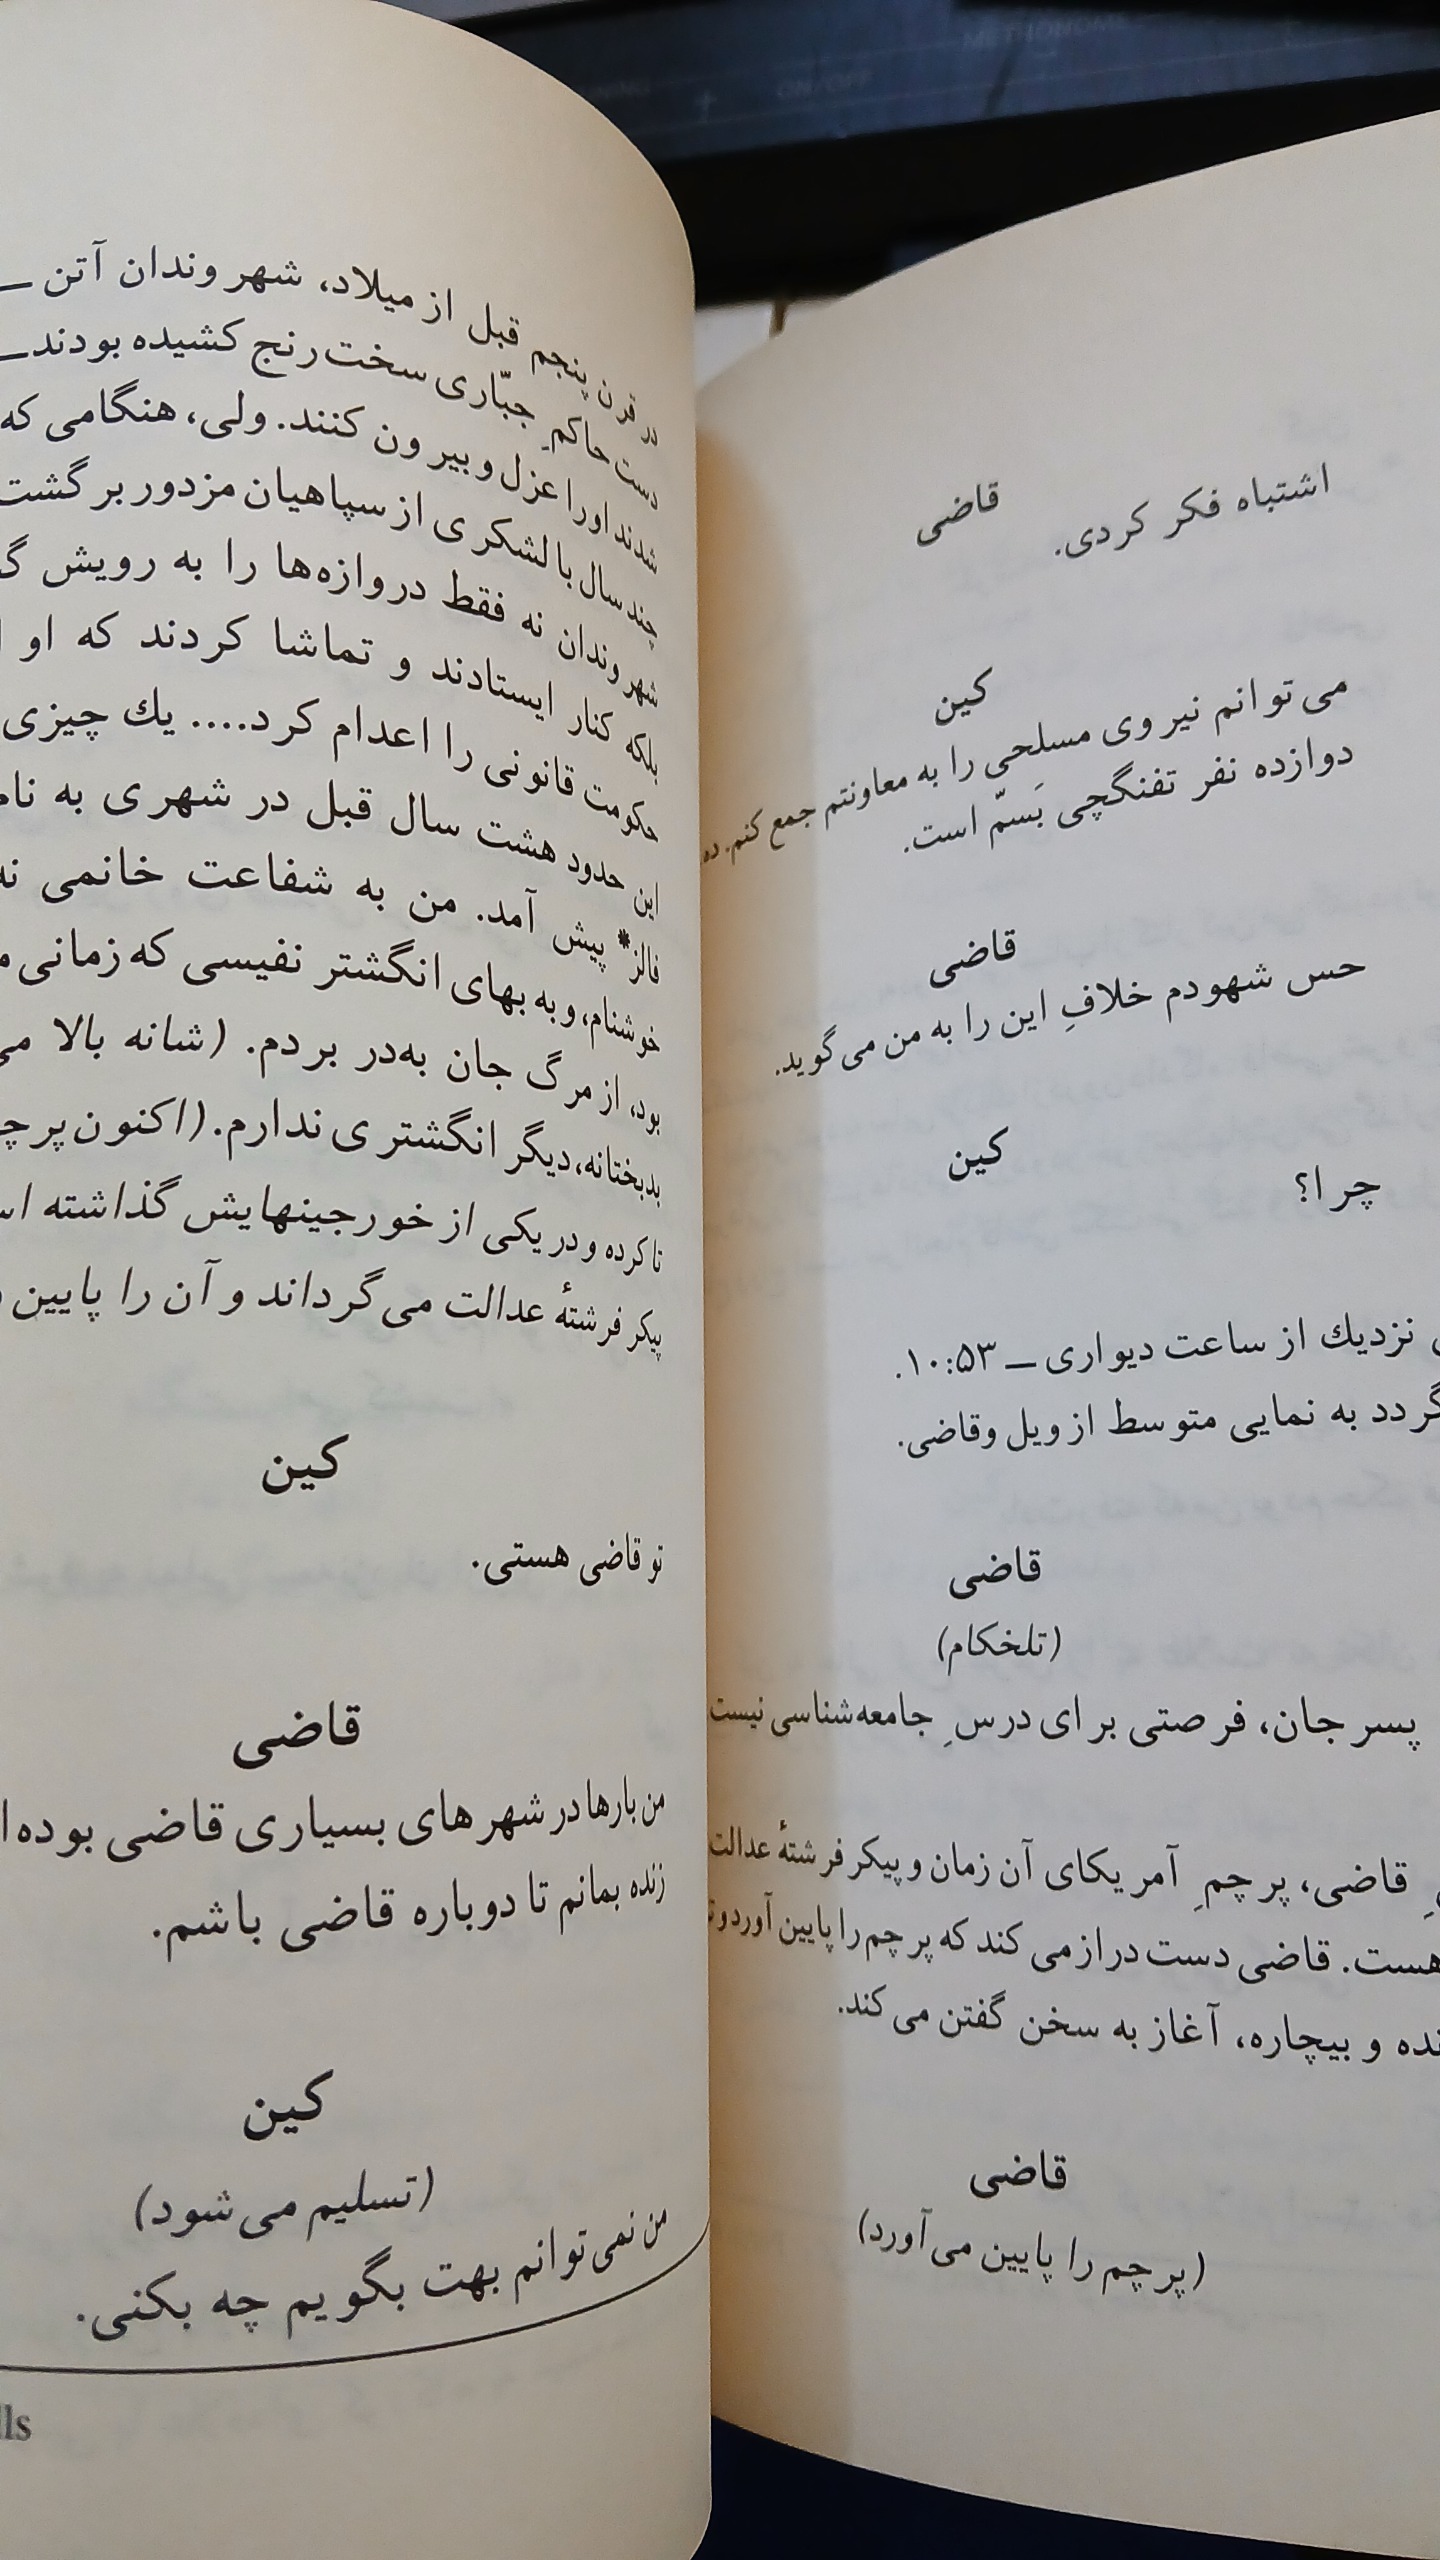 قاضی
اشتباه فکر کردی.
کین
می‌توانم نیروی مسلحی را به معاونتم جمع کنم. ده
دوازده نفر تفنگچی بَسمّ است.
قاضی
حس شهودم خلافِ این را به من می‌گوید.
کین
چرا؟
نزدیك از ساعت دیواری ــ ۱۰:۵۳.
گردد به نمایی متوسط از ویل وقاضی.
قاضی
(تلخکام)
پسرجان، فرصتی برای درسِ جامعه‌شناسی نیست
قاضی، پرچمِ آمریکای آن زمان و پیکر فرشتهٔ عدالت
هست. قاضی دست دراز می‌کند که پرچم را پایین آورد و
و بیچاره، آغاز به سخن گفتن می‌کند.
قاضی
(پرچم را پایین می‌آورد)
در قرن پنجم قبل از میلاد، شهروندان آتن ــ
دست حاکمِ جبّاری سخت رنج کشیده بودند ــ
شدند او را عزل و بیرون کنند. ولی، هنگامی که
چند سال با لشکری از سپاهیان مزدور برگشت
شهروندان نه فقط دروازه‌ها را به رویش
بلکه کنار ایستادند و تماشا کردند که او
حکومت قانونی را اعدام کرد.... یك چیزی
این حدود هشت سال قبل در شهری به نام
فالز* پیش آمد. من به شفاعت خانمی نه
خوشنام، و به بهای انگشتر نفیسی که زمانی
بود، از مرگ جان به‌در بردم. (شانه بالا
بدبختانه، دیگر انگشتری ندارم. (اکنون
تا کرده و در یکی از خورجینهایش گذاشته
پیکر فرشتهٔ عدالت می‌گرداند و آن را پایین
کین
تو قاضی هستی.
قاضی
من بارها در شهرهای بسیاری قاضی بوده‌ا
زنده بمانم تا دوباره قاضی باشم.
کین
(تسلیم می‌شود)
من نمی‌توانم بهت بگویم چه بکنی.
lls